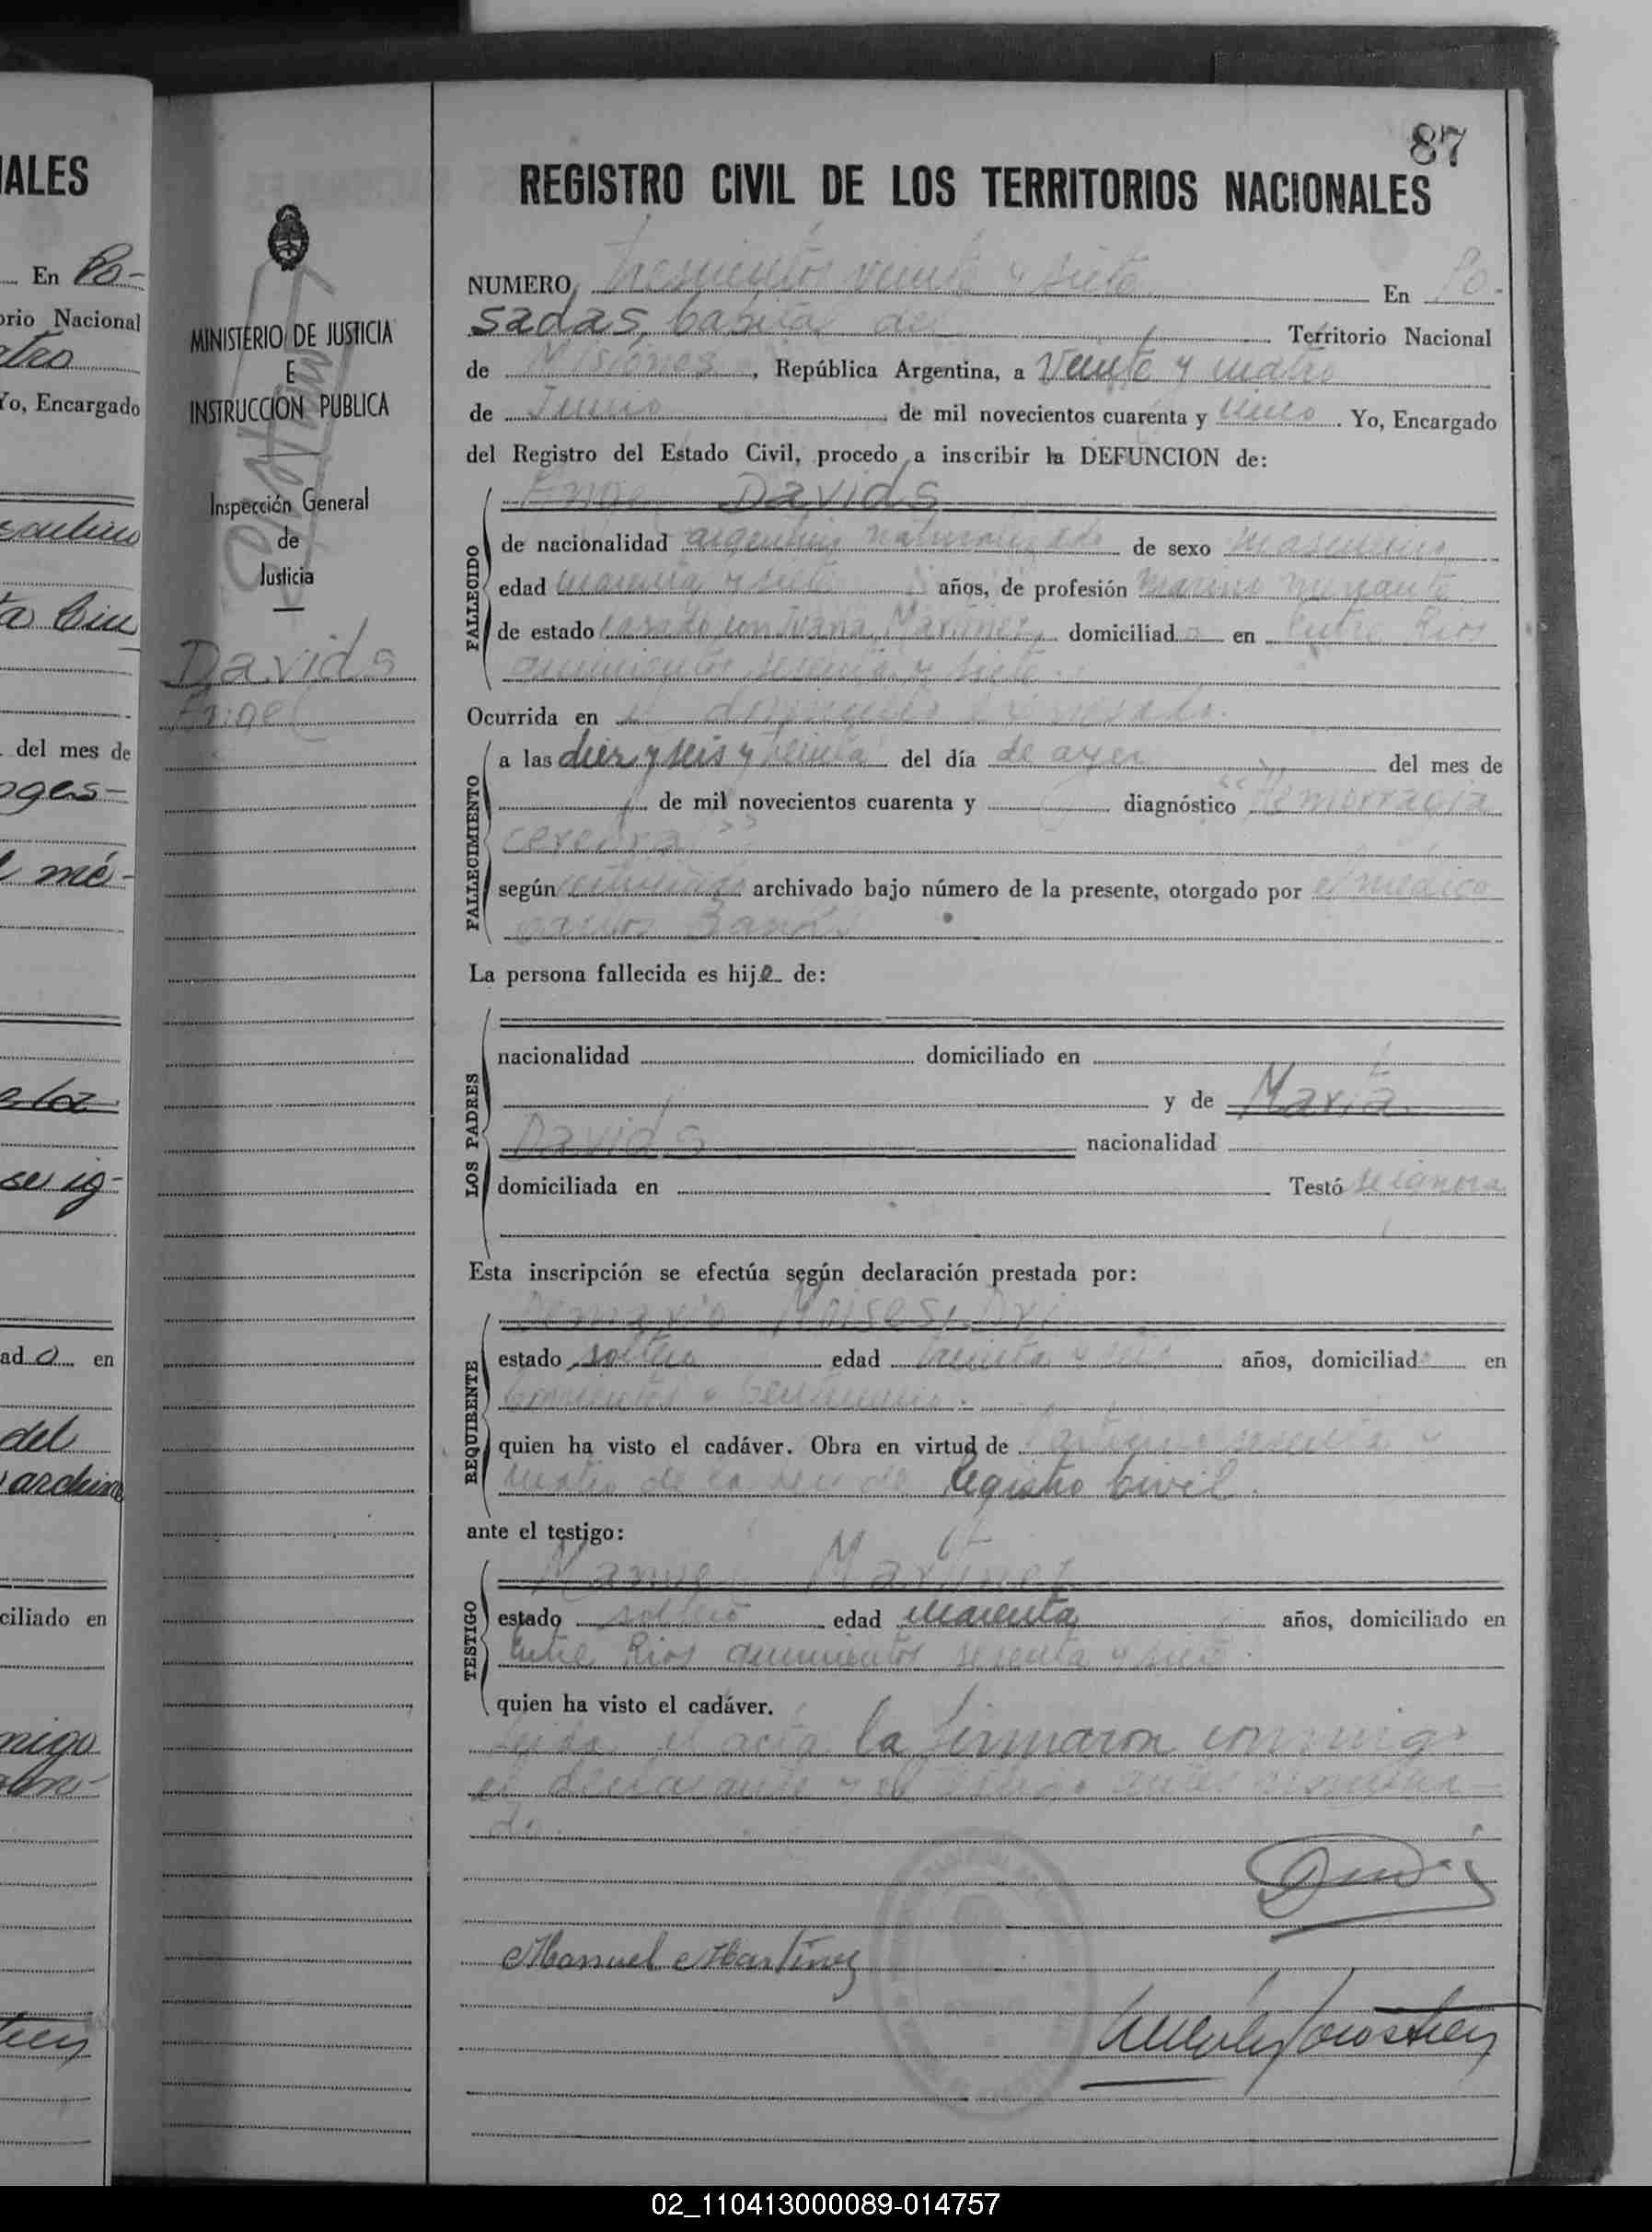 ALES
En Po-
orio Nacional
atro
Yo, Encargado
sculino
ta Cin
del mes de
oges-
l mé-
se ig-
ad o en
del
archiva
ciliado en
migo
MINISTERIO DE JUSTICIA
E
INSTRUCCIÓN PUBLICA
Inspección General
de
Justicia
Davids
Angel
87
REGISTRO CIVIL DE LOS TERRITORIOS NACIONALES
NUMERO trescientos veinte y siete En Po-
sadas, Capital del Territorio Nacional
de Misiones, República Argentina, a veinte y cuatro
de Junio de mil novecientos cuarenta y cinco Yo, Encargado
del Registro del Estado Civil, procedo a inscribir la DEFUNCION de:
Angel Davids
FALLECIDO
de nacionalidad argentino naturalizado de sexo masculino
edad cuarenta y siete años, de profesión marino mercante
de estado casado con Juana Martinez, domiciliado en Entre Rios
quinientos sesenta y siete.
Ocurrida en el domicilio expresado.
FALLECIMIENTO
a las diez y seis y treinta del día de ayer del mes de
de mil novecientos cuarenta y diagnóstico "Hemorragia
cerebral"
según certificado archivado bajo número de la presente, otorgado por el médico
Carlos
La persona fallecida es hijo de:
LOS PADRES
nacionalidad domiciliado en
y de María
Davids nacionalidad
domiciliada en Testó se ignora
Esta inscripción se efectúa según declaración prestada por:
Moises
REQUIRENTE
estado soltero edad años, domiciliado en
quien ha visto el cadáver. Obra en virtud de artículo sesenta y
cuatro de la ley de Registro Civil.
ante el testigo:
Manuel Martinez
TESTIGO
estado soltero edad cuarenta años, domiciliado en
Entre Rios quinientos sesenta y siete.
quien ha visto el cadáver.
Leida el acta la firmaron conmigo
el declarante y el testigo antes menciona-
do.
Manuel Martinez
02_110413000089-014757